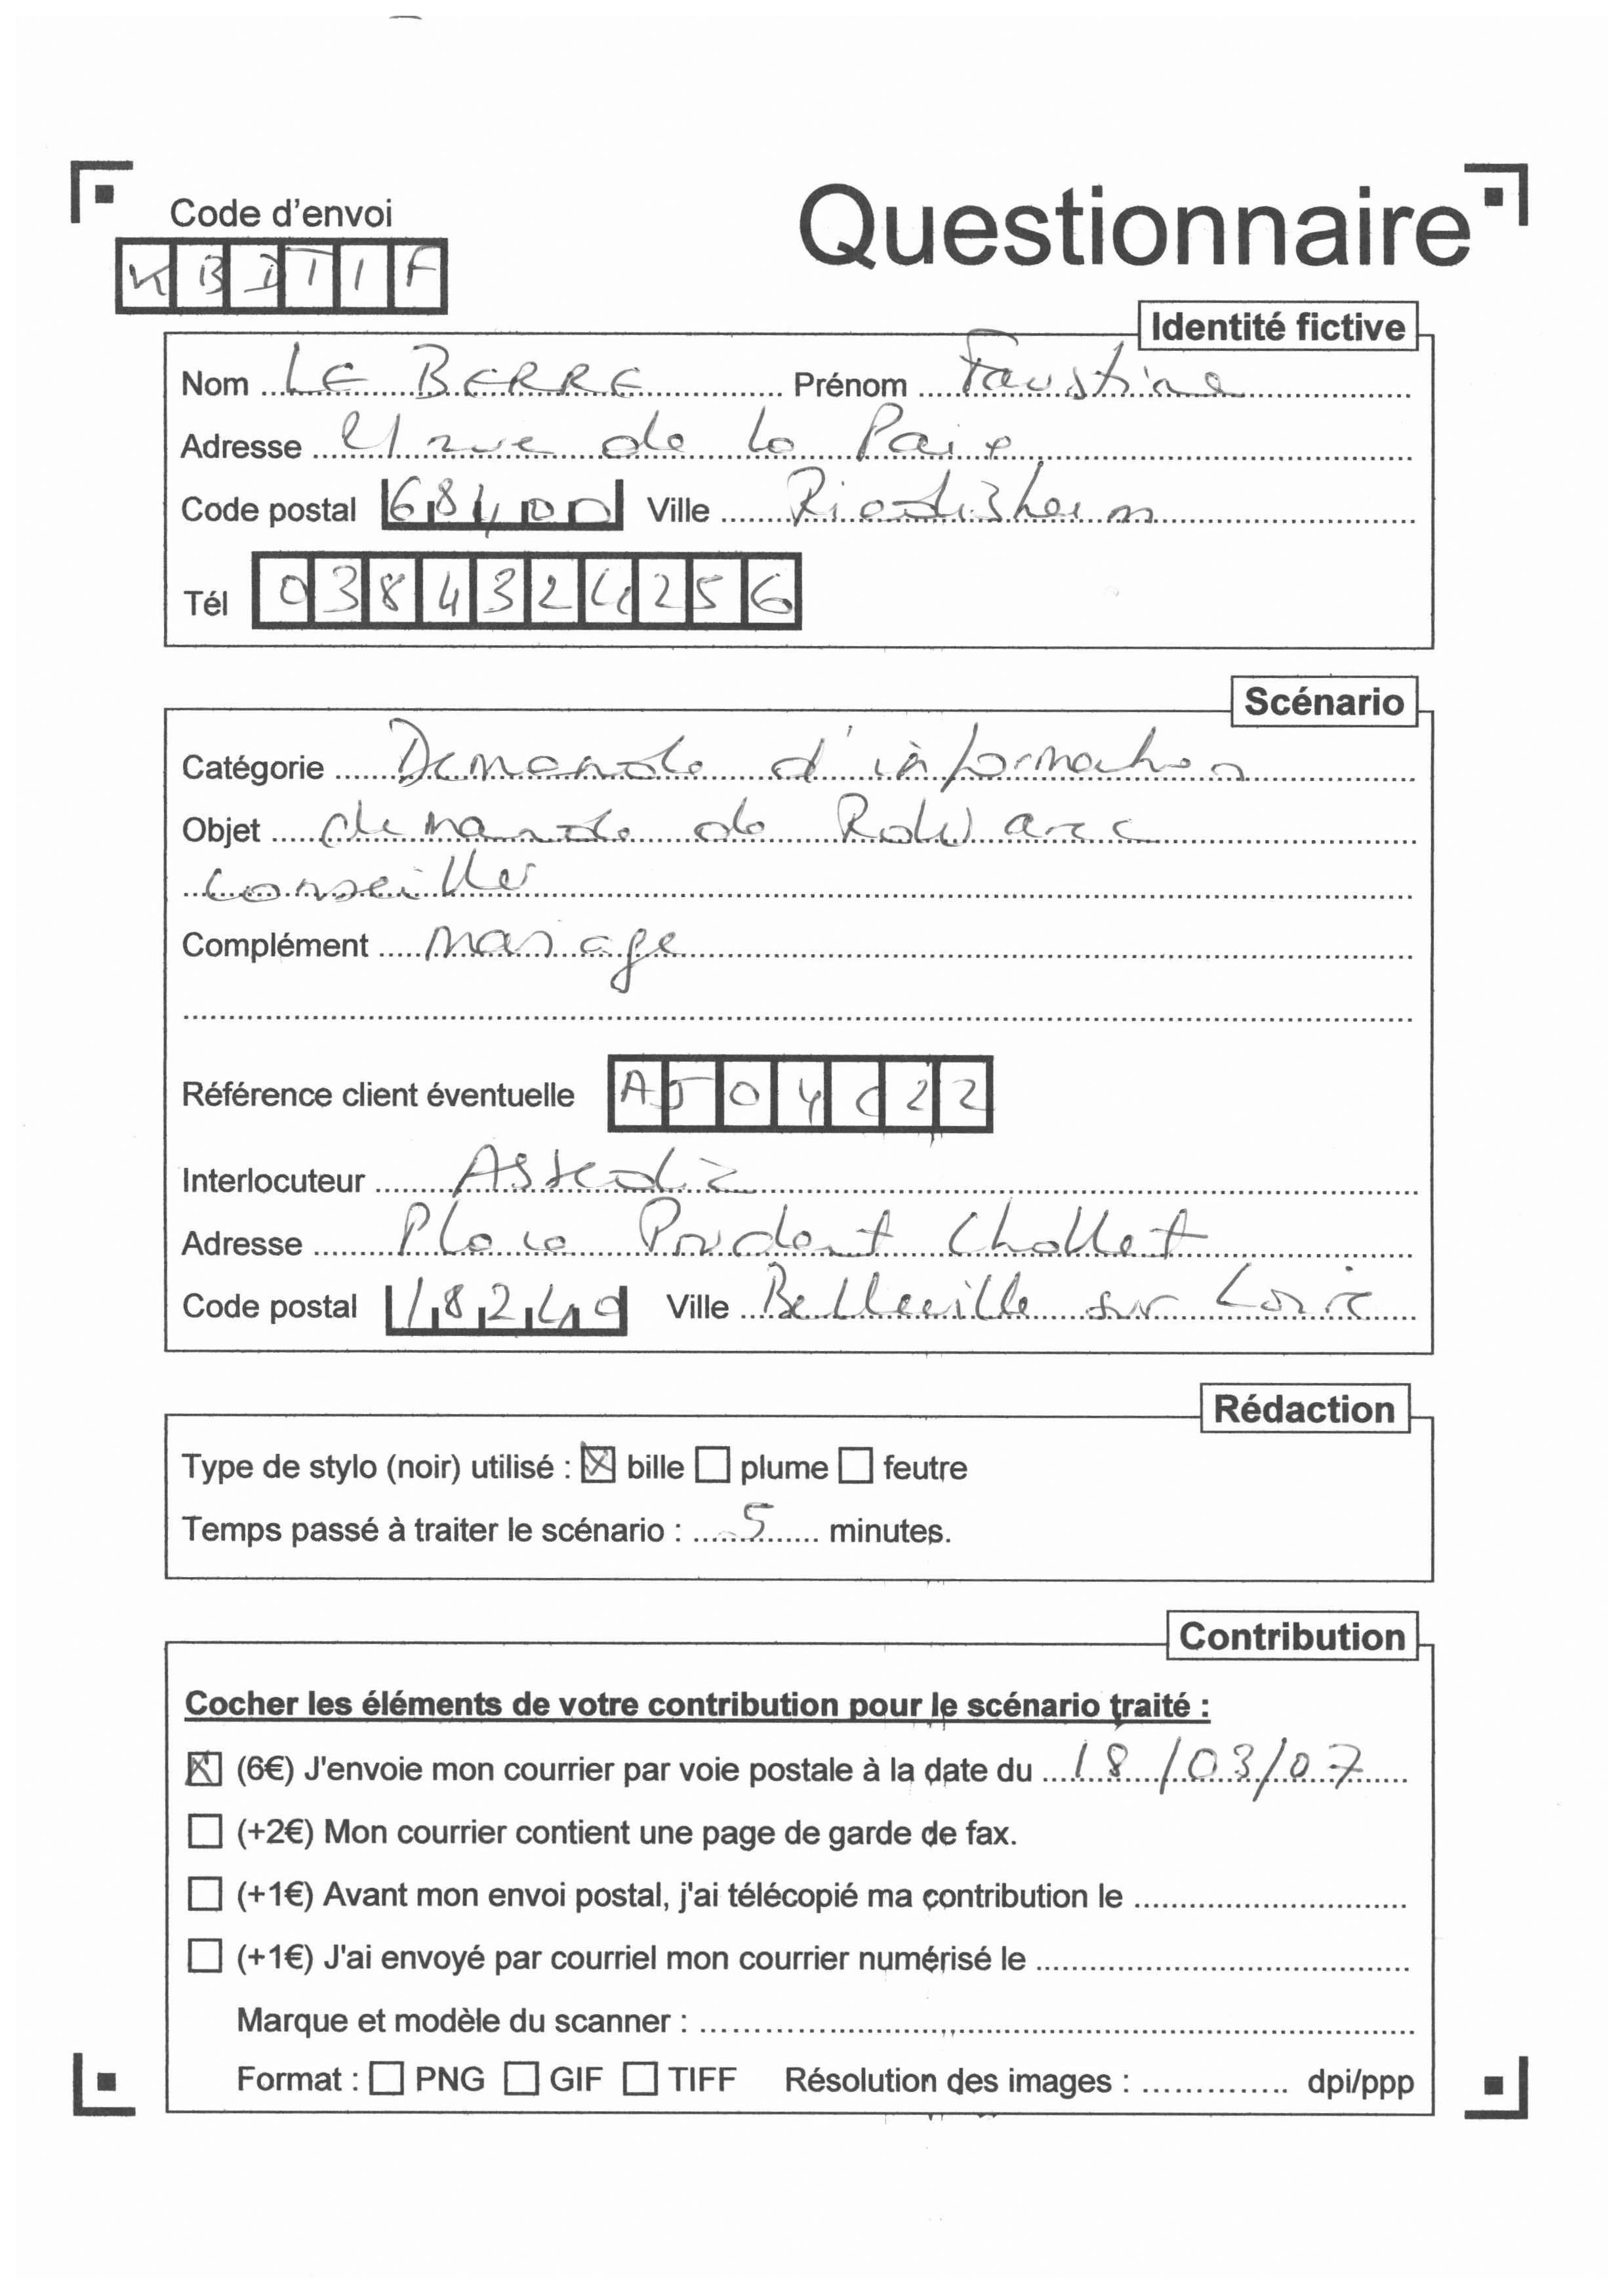 Code d'envoi
Questionnaire
KBDTIF
Identité fictive
Nom LE BERRE Prénom Faustine
Adresse 21 rue de la Paix
Code postal 68400 Ville Riedisheim
Tél 0384324256
Scénario
Catégorie Demande d'information
Objet demande de Rdv avec
conseiller
Complément mariage
Référence client éventuelle AJ04C22
Interlocuteur Assedic
Adresse Place Prudent Chollet
Code postal 18240 Ville Belleville sur Loire
Rédaction
Type de stylo (noir) utilisé : ☒ bille ☐ plume ☐ feutre
Temps passé à traiter le scénario : 5 minutes.
Contribution
Cocher les éléments de votre contribution pour le scénario traité :
☒ (6€) J'envoie mon courrier par voie postale à la date du 18/03/07
☐ (+2€) Mon courrier contient une page de garde de fax.
☐ (+1€) Avant mon envoi postal, j'ai télécopié ma contribution le
☐ (+1€) J'ai envoyé par courriel mon courrier numérisé le
Marque et modèle du scanner :
Format : ☐ PNG ☐ GIF ☐ TIFF Résolution des images : dpi/ppp